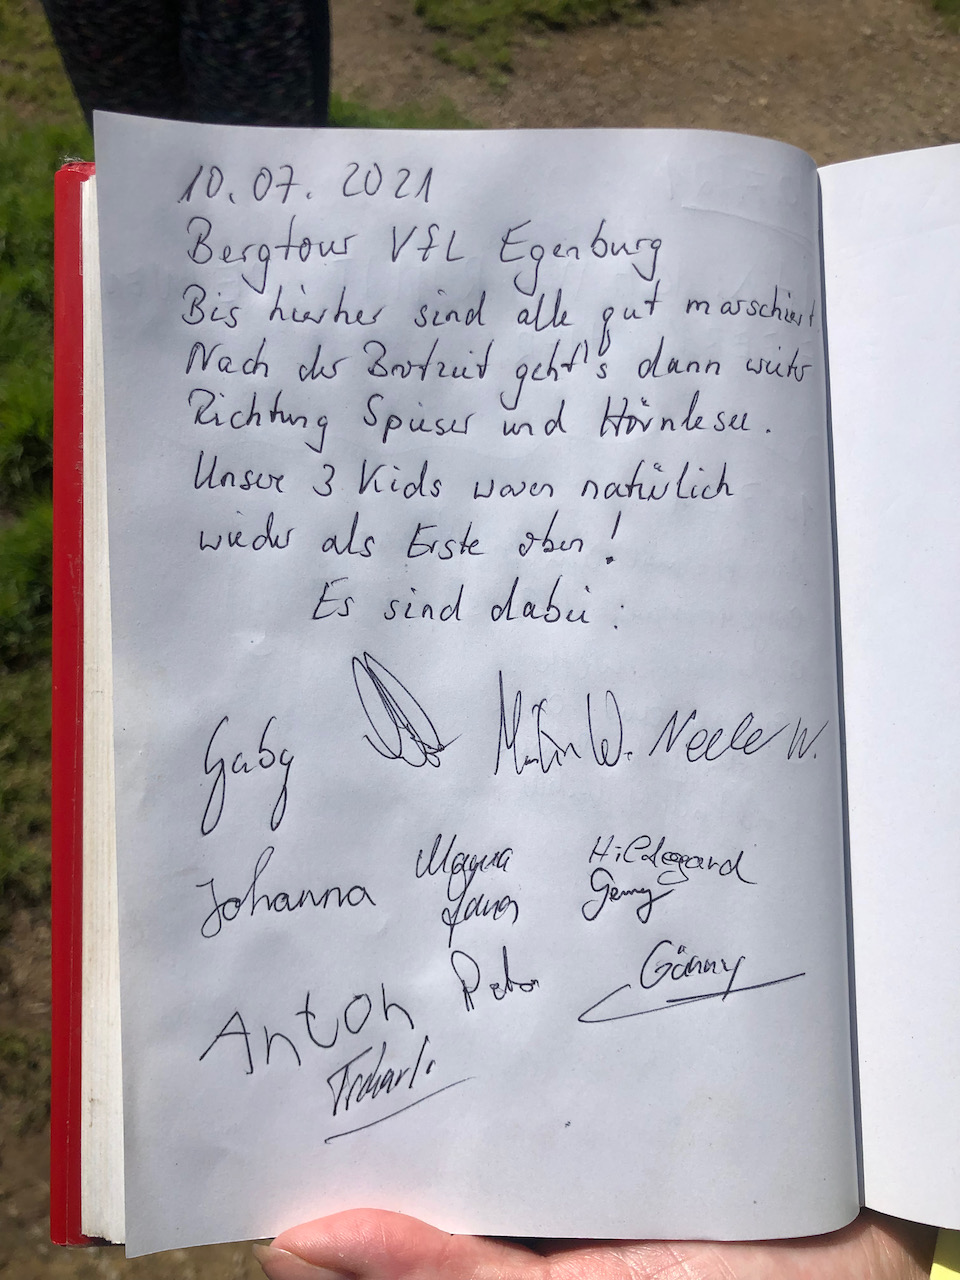 10.07.2021
Bergtour VfL Egenburg
Bis hierher sind alle gut marschiert
Nach der Brotzeit geht's dann weiter
Richtung Spieser und Hörnlesee.
Unsere 3 Kids waren natürlich
wieder als Erste oben!
Es sind dabei:
Gaby Martin W. Neele W.
Johanna Magna Hildegard
Jana Genny
Anton Peter Gönny